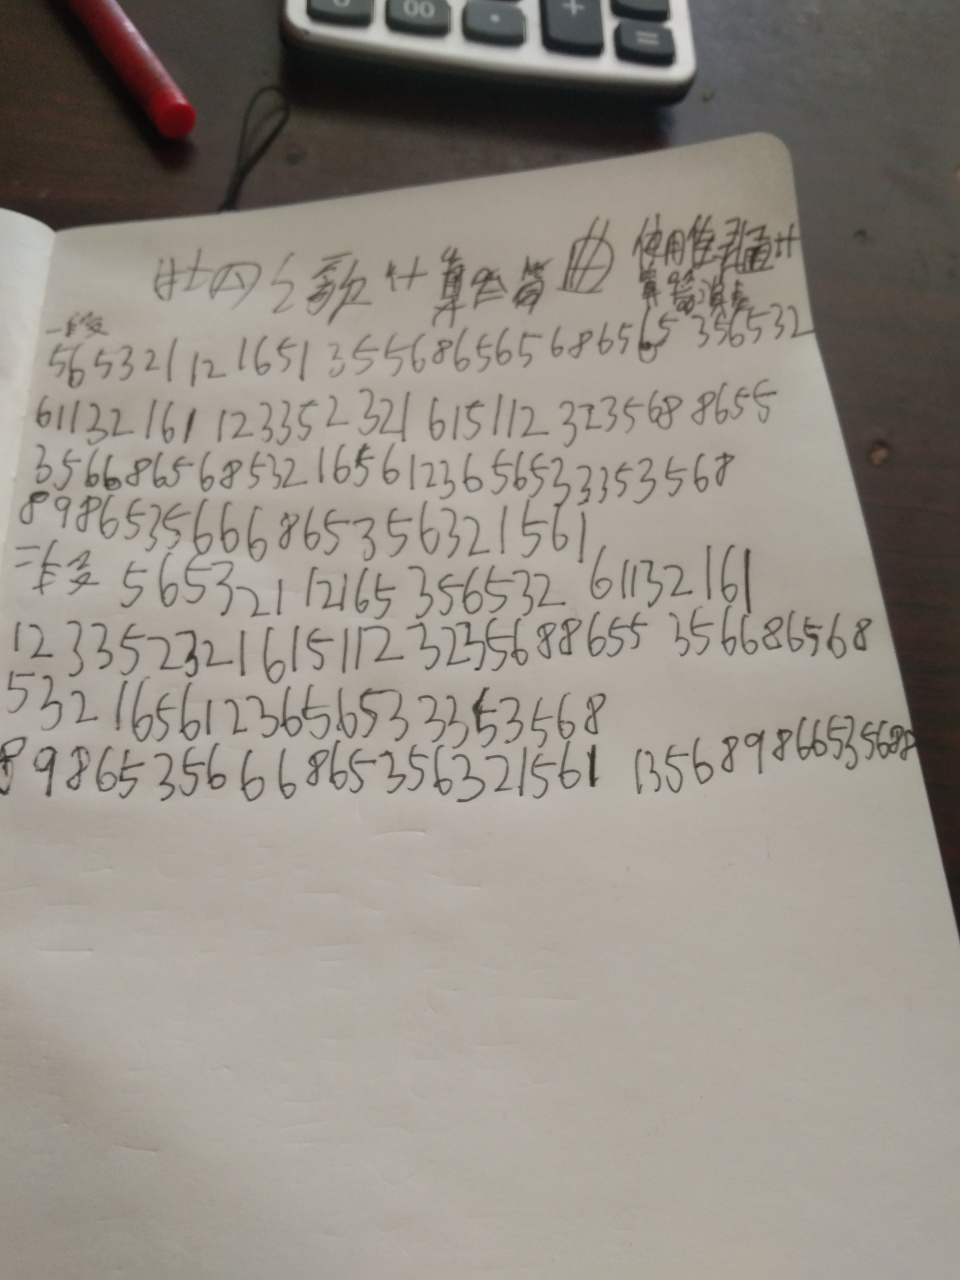 算 曲 使用
算
一段
565321121651355686565686565 356532
61132161 12335232161511232356888655
35668656853216561236565333353568
898656356668653563215 61
二段 565321 12165 356532 61132161
123352321615112323568865​5 356686568
532 165612365653333​53568
898653566686535632​1561 1356898665356​88